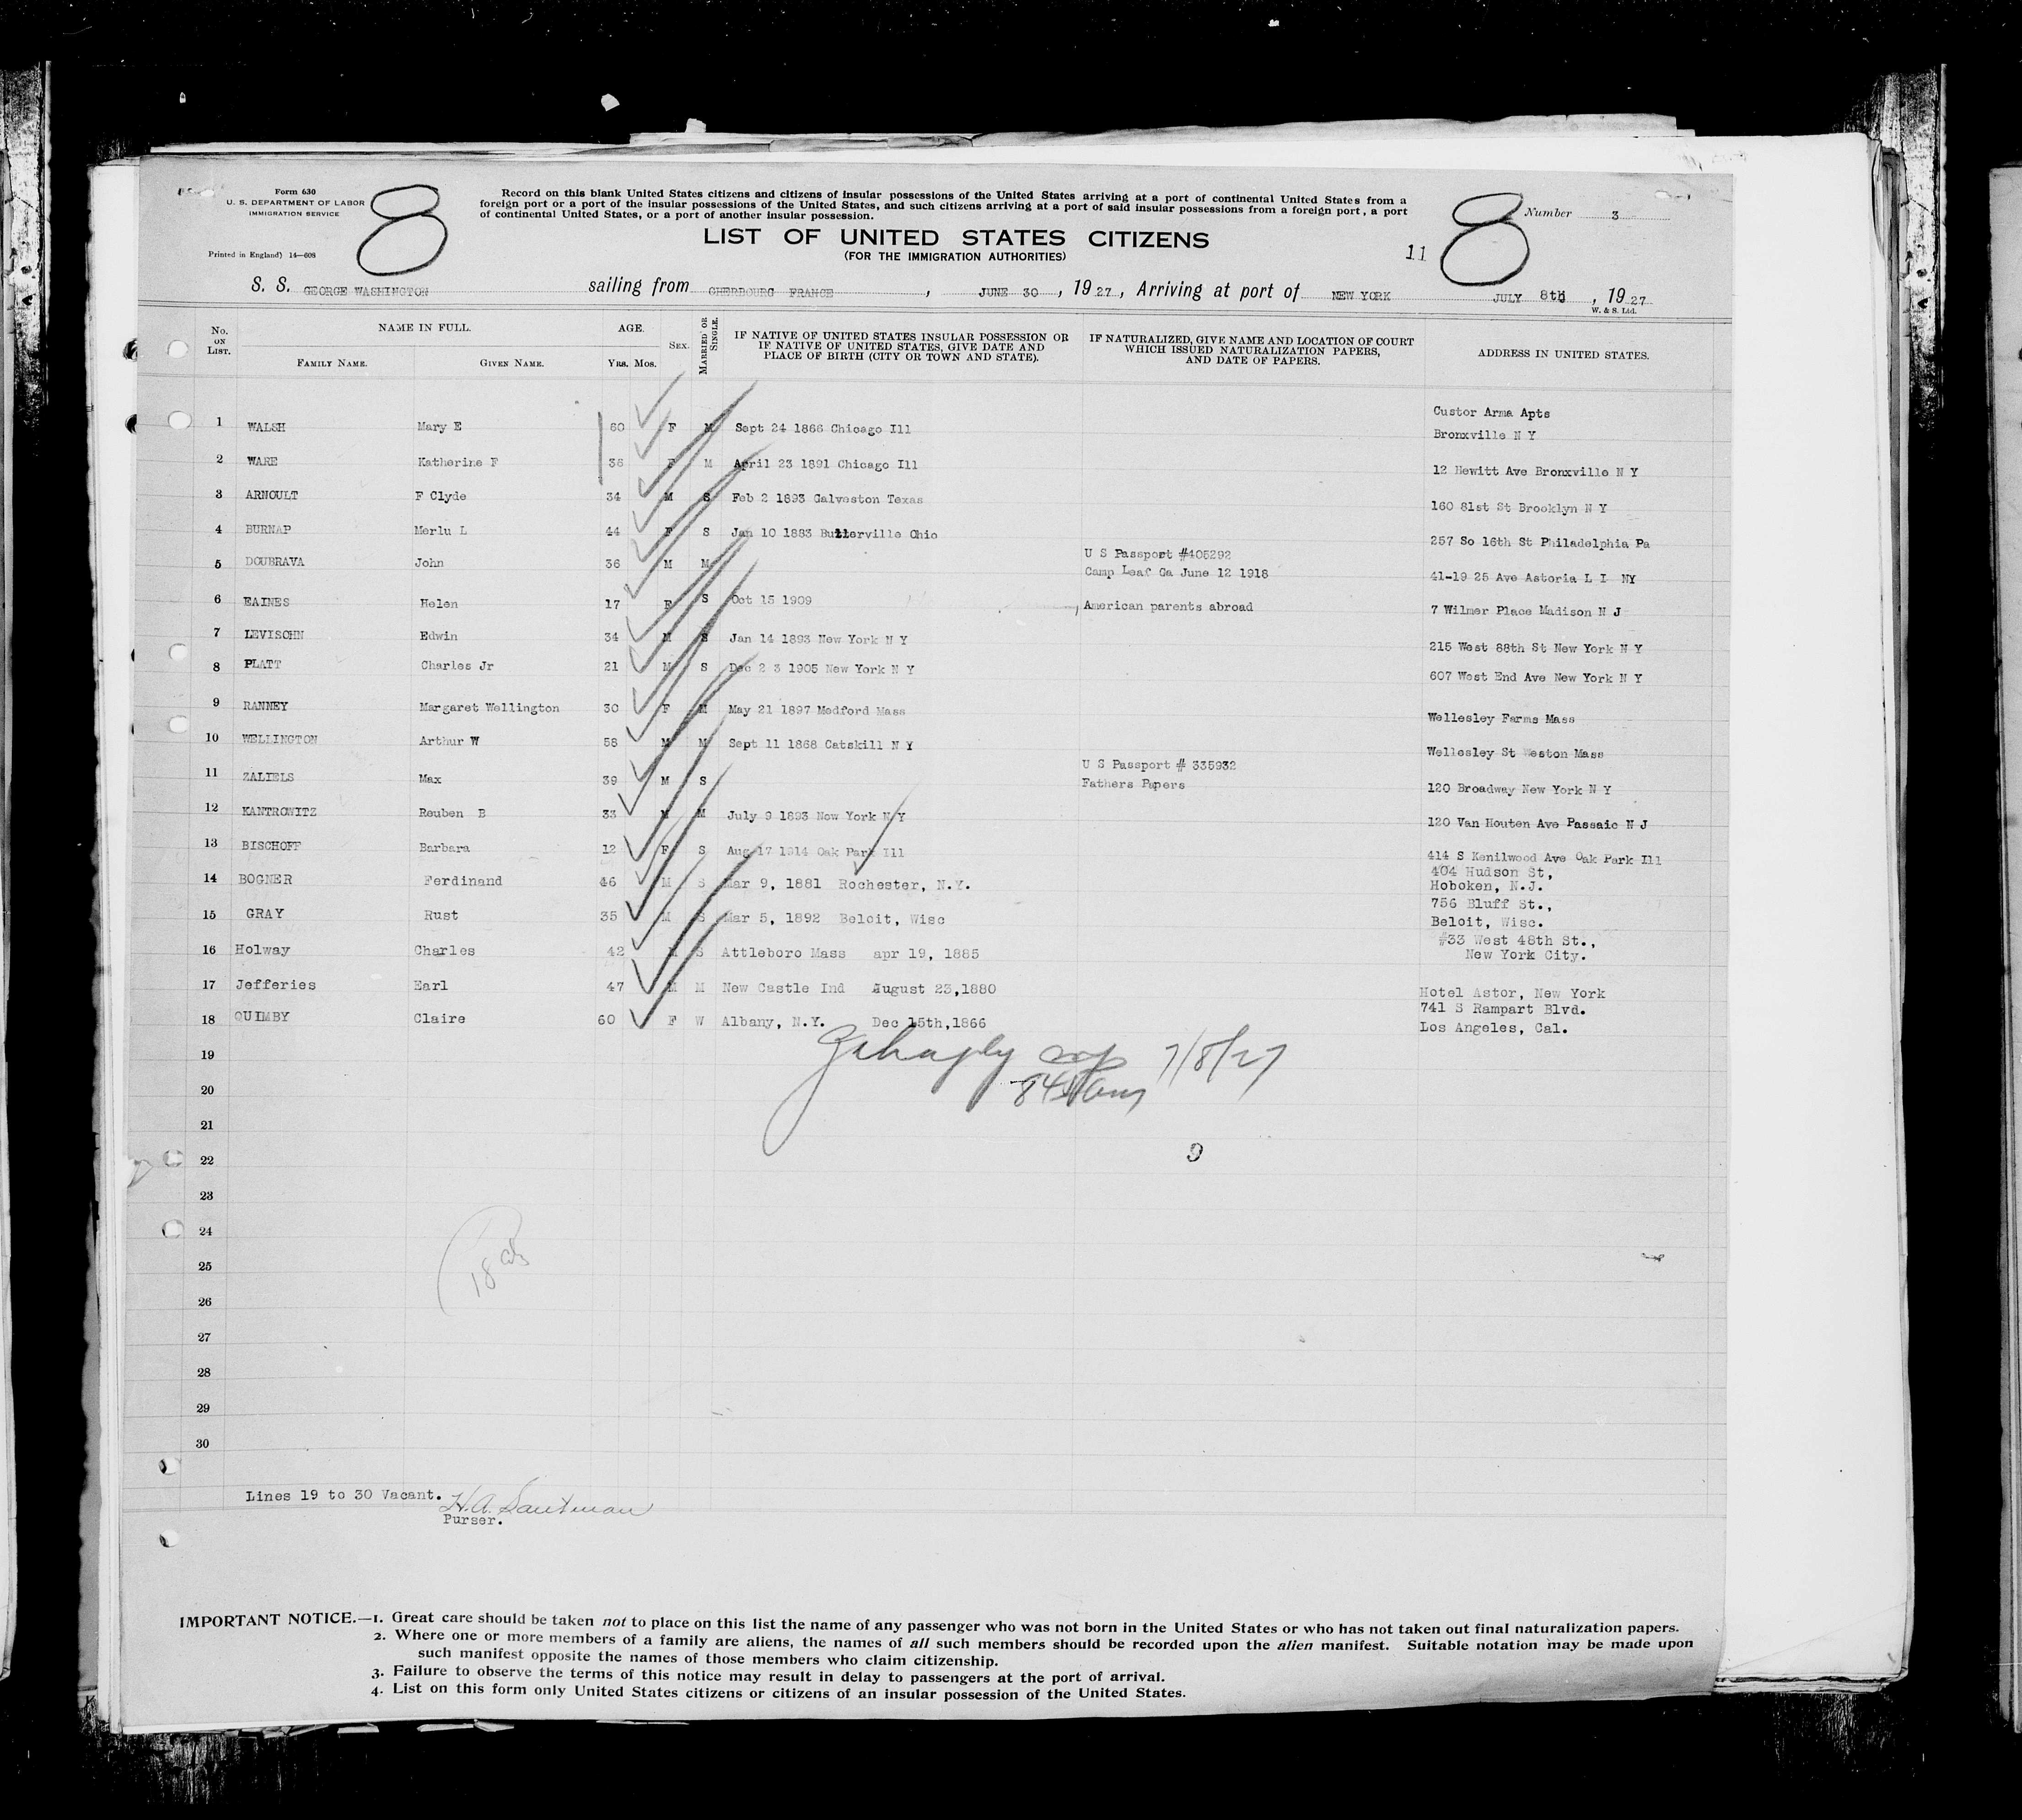 Form 630
U. S. DEPARTMENT OF LABOR
IMMIGRATION SERVICE
Printed in England) 14—608
8
Record on this blank United States citizens and citizens of insular possessions of the United States arriving at a port of continental United States from a
foreign port or a port of the insular possessions of the United States, and such citizens arriving at a port of said insular possessions from a foreign port, a port
of continental United States, or a port of another insular possession.
8
Number 3
LIST OF UNITED STATES CITIZENS
(FOR THE IMMIGRATION AUTHORITIES)
11
S. S. GEORGE WASHINGTON sailing from CHERBOURG FRANCE, JUNE 30, 1927, Arriving at port of NEW YORK JULY 8th, 1927
W. & S. Ltd.
No. ON LIST. NAME IN FULL. FAMILY NAME. GIVEN NAME. AGE. Yrs. Mos. SEX. MARRIED OR SINGLE. IF NATIVE OF UNITED STATES INSULAR POSSESSION OR IF NATIVE OF UNITED STATES, GIVE DATE AND PLACE OF BIRTH (CITY OR TOWN AND STATE). IF NATURALIZED, GIVE NAME AND LOCATION OF COURT WHICH ISSUED NATURALIZATION PAPERS, AND DATE OF PAPERS. ADDRESS IN UNITED STATES.
1 WALSH Mary E 60 F M Sept 24 1866 Chicago Ill Custor Arma Apts Bronxville N Y
2 WARE Katherine F 36 F M April 23 1891 Chicago Ill 12 Hewitt Ave Bronxville N Y
3 ARNOULT F Clyde 34 M S Feb 2 1893 Galveston Texas 160 81st St Brooklyn N Y
4 BURNAP Merlu L 44 F S Jan 10 1883 Butterville Ohio 257 So 16th St Philadelphia Pa
5 DOUBRAVA John 36 M M U S Passport #405292 Camp Leaf Ga June 12 1918 41-19 25 Ave Astoria L I NY
6 EAINES Helen 17 F S Oct 15 1909 American parents abroad 7 Wilmer Place Madison N J
7 LEVISOHN Edwin 34 M S Jan 14 1893 New York N Y 215 West 88th St New York N Y
8 PLATT Charles Jr 21 M S Dec 2 3 1905 New York N Y 607 West End Ave New York N Y
9 RANNEY Margaret Wellington 30 F M May 21 1897 Medford Mass Wellesley Farms Mass
10 WELLINGTON Arthur W 58 M M Sept 11 1868 Catskill N Y Wellesley St Weston Mass
11 ZALIELS Max 39 M S U S Passport # 335932 Fathers Papers 120 Broadway New York N Y
12 KANTROWITZ Reuben B 33 M M July 9 1893 New York N Y 120 Van Houten Ave Passaic N J
13 BISCHOFF Barbara 12 F S Aug 17 1914 Oak Park Ill 414 S Kenilwood Ave Oak Park Ill
14 BOGNER Ferdinand 46 M S Mar 9, 1881 Rochester, N.Y. 404 Hudson St, Hoboken, N.J.
15 GRAY Rust 35 M S Mar 5, 1892 Beloit, Wisc 756 Bluff St., Beloit, Wisc.
16 Holway Charles 42 M S Attleboro Mass apr 19, 1885 #33 West 48th St., New York City.
17 Jefferies Earl 47 M M New Castle Ind August 23,1880 Hotel Astor, New York
18 QUIMBY Claire 60 F W Albany, N.Y. Dec 15th,1866 741 S Rampart Blvd. Los Angeles, Cal.
19
7/8/27
20
21
22
9
23
24
25
18
26
27
28
29
30
Lines 19 to 30 Vacant.
H.A. Sautman
Purser.
IMPORTANT NOTICE.—1. Great care should be taken not to place on this list the name of any passenger who was not born in the United States or who has not taken out final naturalization papers.
2. Where one or more members of a family are aliens, the names of all such members should be recorded upon the alien manifest. Suitable notation may be made upon
such manifest opposite the names of those members who claim citizenship.
3. Failure to observe the terms of this notice may result in delay to passengers at the port of arrival.
4. List on this form only United States citizens or citizens of an insular possession of the United States.